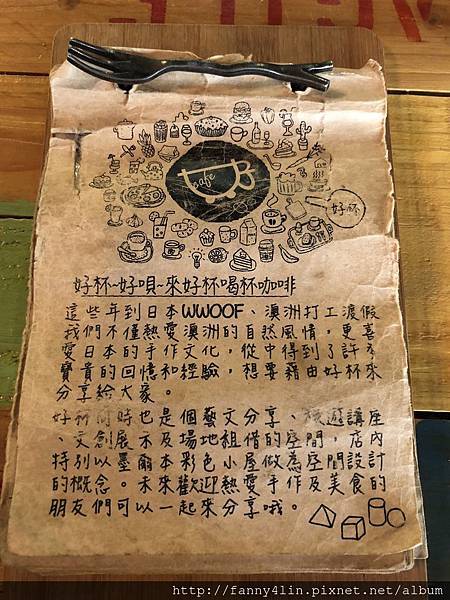 cafe
好杯
好杯~好唄~來好杯喝杯咖啡
這些年到日本WWOOF、澳洲打工渡假
我們不僅熱愛澳洲的自然風情，更喜
愛日本的手作文化，從中得到了許多
寶貴的回憶和經驗，想要藉由好杯來
分享給大家。
好杯同時也是個藝文分享、旅遊講座
、文創展示及場地租借的空間，店內
特別以墨爾本彩色小屋做為空間設計
的概念。未來歡迎熱愛手作及美食的
朋友們可以一起來分享哦。
http://fanny4lin.pixnet.net/album